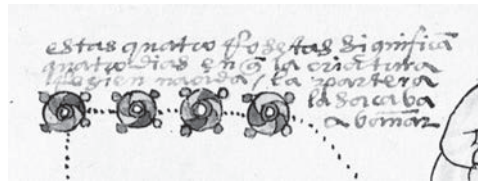 estas quatro Rosetas significā
quatro dias en q̄ la criatura
rezien nacida / la partera
la sacaba
a bañar